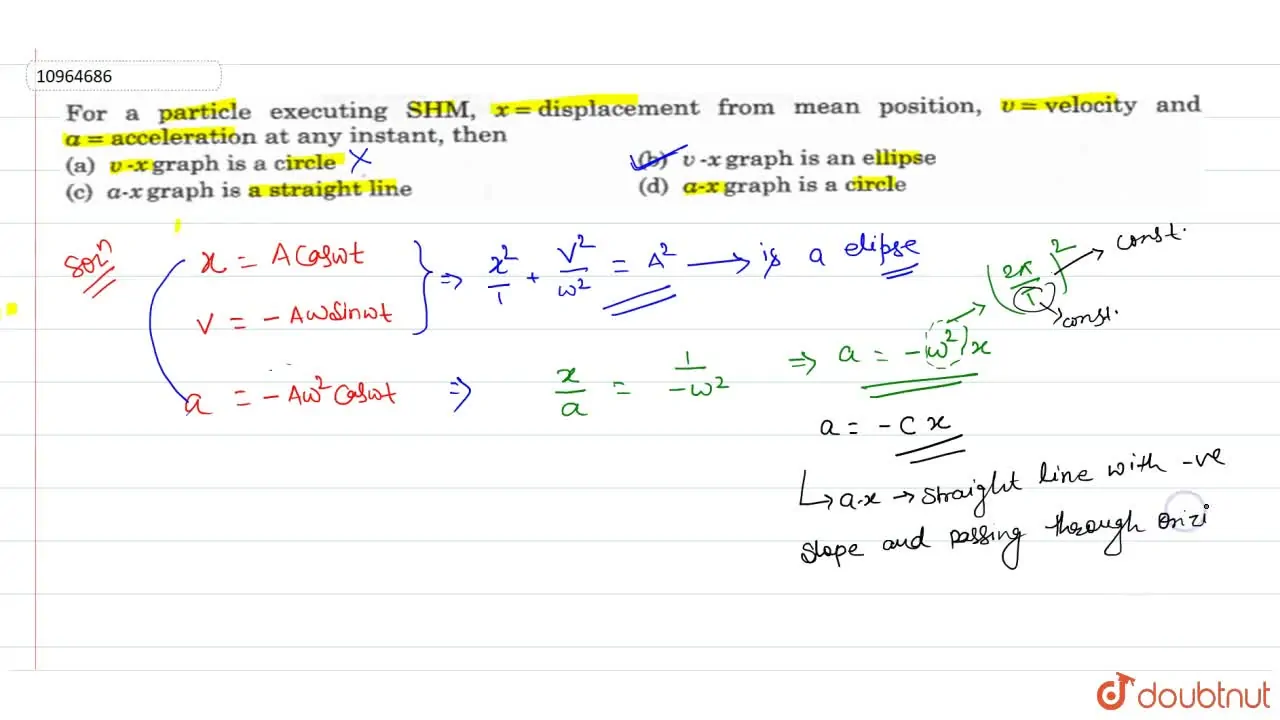 10964686
For a particle executing SHM, x = displacement from mean position, v = velocity and
a = acceleration at any instant, then
(a) v-x graph is a circle X (b) v-x graph is an ellipse
(c) a-x graph is a straight line (d) a-x graph is a circle
Solⁿ
x = A Cosωt
v = - Aωsinωt
} ⇒ x²/1 + V²/ω² = A² → is a elipse
(2π/T)² → const.
→ const.
a = - Aω² Cosωt ⇒ x/a = 1/-ω² ⇒ a = -(ω²)x
a = - C x
↳ a-x → Straight line with -ve
slope and passing through orizi
doubtnut